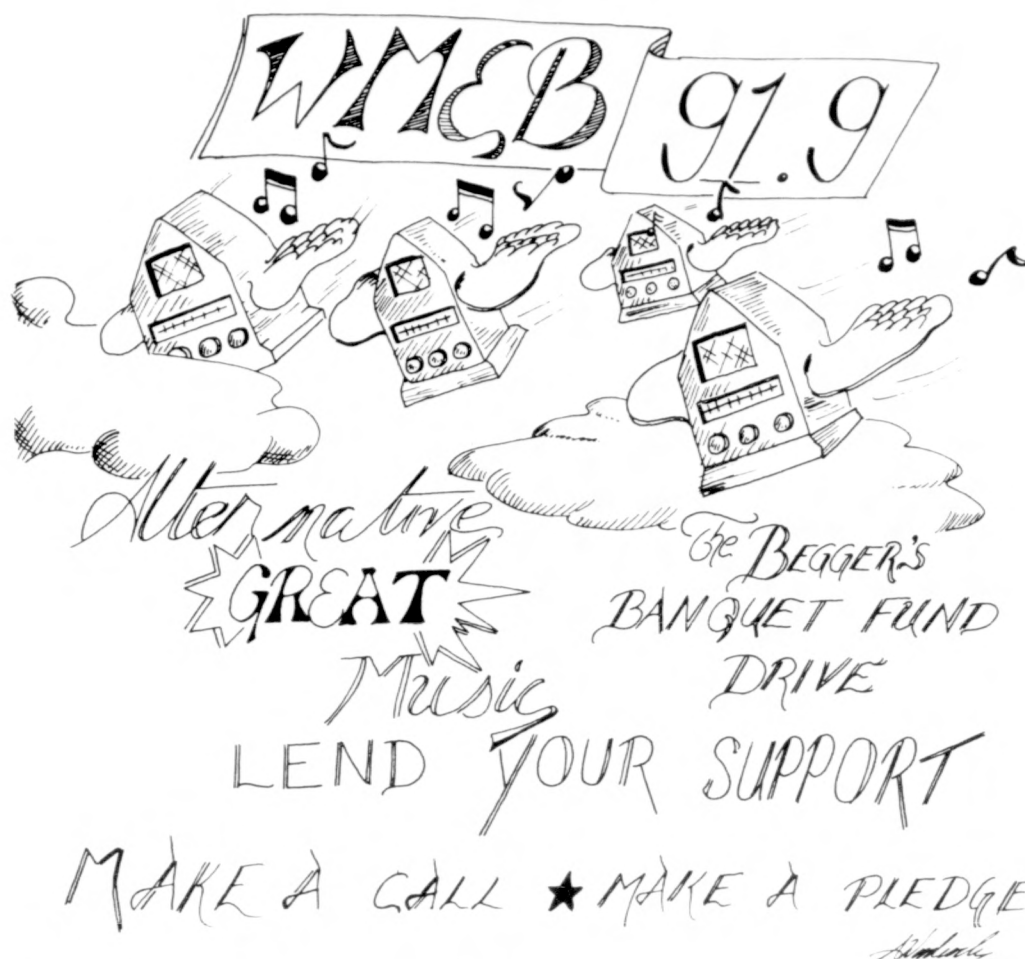 WMEB 91.9
Alternative
GREAT
Music
The BEGGER'S
BANQUET FUND
DRIVE
LEND YOUR SUPPORT
MAKE A CALL ★ MAKE A PLEDGE